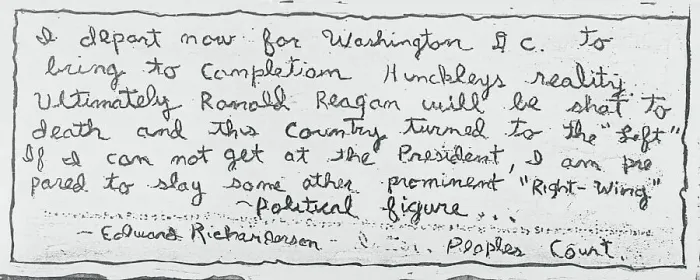 I depart now for Washington D.C. to
bring to completion Hinckleys reality.
Ultimately Ronald Reagan will be shot to
death and this country turned to the "Left"
If I can not get at the President, I am pre
pared to slay some other prominent "Right-Wing"
~Political figure...
- Edward Richardson - Peoples Court.